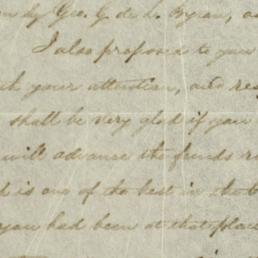 by Geo. G. de L. Byron, a
I also proposed to you
your attention, and res
shall be very glad if you
will advance the funds r
d is one of the best in the
you had been at that place